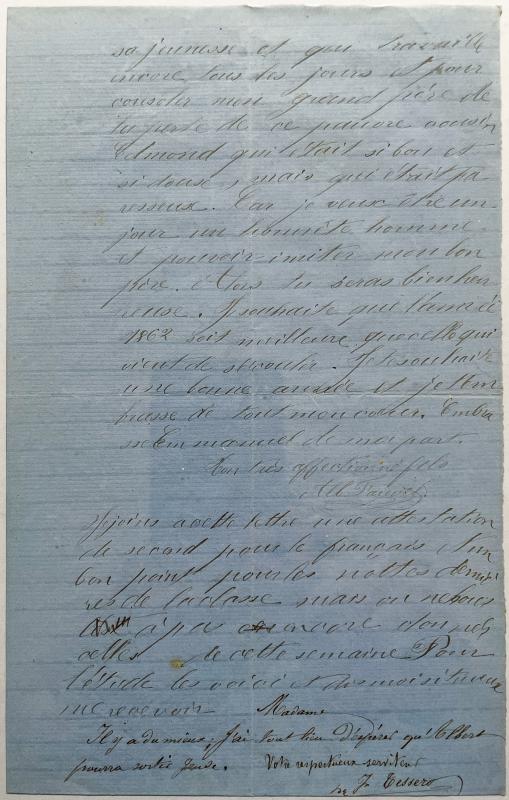 sa jeunesse et qui travaille
encore tous les jours et pour
consoler mon grand père de
la perte de ce pauvre cousin
Edmond qui était si bon et
si doux, mais qui était pa
resseux. Car je veux être un
jour un honnête homme
et pouvoir imiter mon bon
père. Alors tu seras bien heu
reuse. Je souhaite que l'année
1862 soit meilleure que celle qui
vient de s'écouler. Je te souhaite
une bonne année et je t'em
brasse de tout mon cœur. Embra
sse Emmanuel de ma part.
Ton très affectionné fils
Alb.
J'joins a cette lettre une attestation
de second pour le français et un
bon point pour les nottes derniè
res de la classe mais on ne nous
à pas encore donnés
celles de cette semaine Pour
l'étude les voici et dis moi si tu veux
me recevoir
Madame
Il y a du mieux, j'ai tout lieu d'espérer qu'Albert
pourra sortir jeudi. Votre respectueux serviteur
J. Tessero